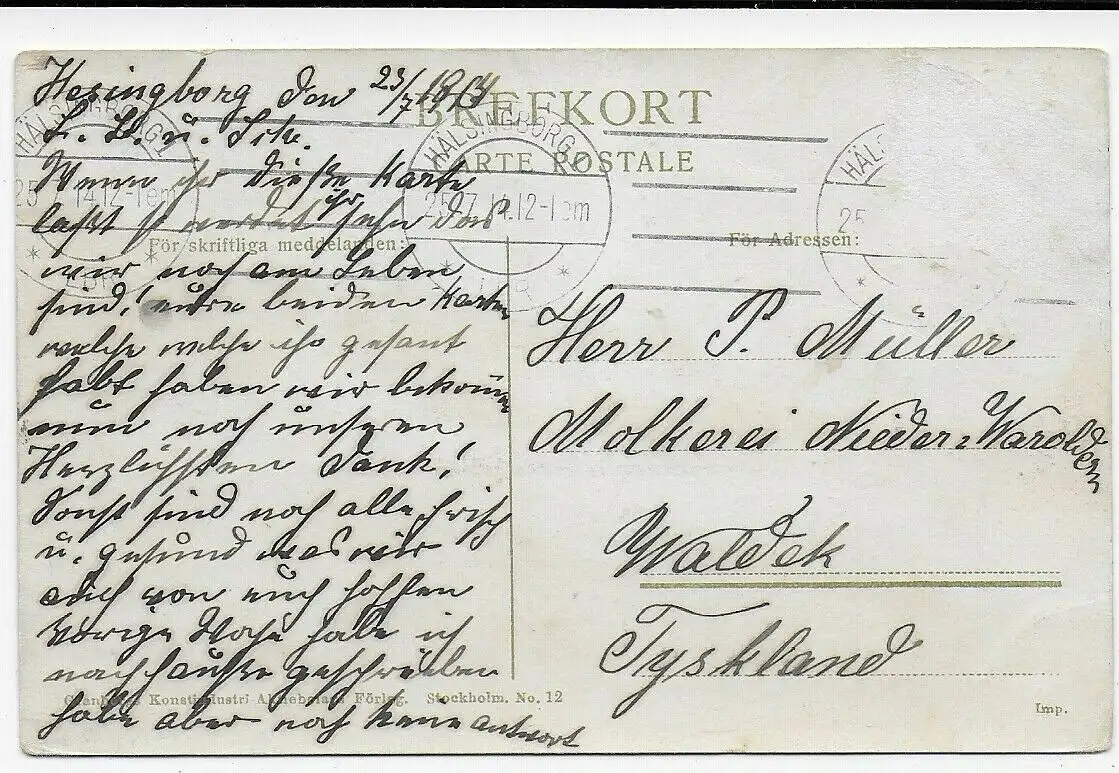 Hesingborg den 23/7 1914
L. B. u. Frk.
Wenn ihr dieße Karte
laßt so werdet ihr sehn das
wir noch am Leben
sind! eure beiden Karten
welche welche ihr gesant
habt haben wir bekommen
nun noch unseren
Herzlichsten Dank!
Sonst sind noch alle frisch
u. gesund was wir
auch von euch hoffen
Vorige Woche habe ich
nach hauße geschrieben
habe aber noch keine antwort
BREFKORT
CARTE POSTALE
För skriftliga meddelanden:
För Adressen:
HÄLSINGBORG 1
25 7 14.12-1 em
HÄLSINGBORG
25 7 14.12-1 em
HÄLS
25
Herr P. Müller
Molkerei Nieder-Waroldern
Waldek
Tyskland
Konstindustri Aktiebolags Förlag. Stockholm. No. 12
Imp.